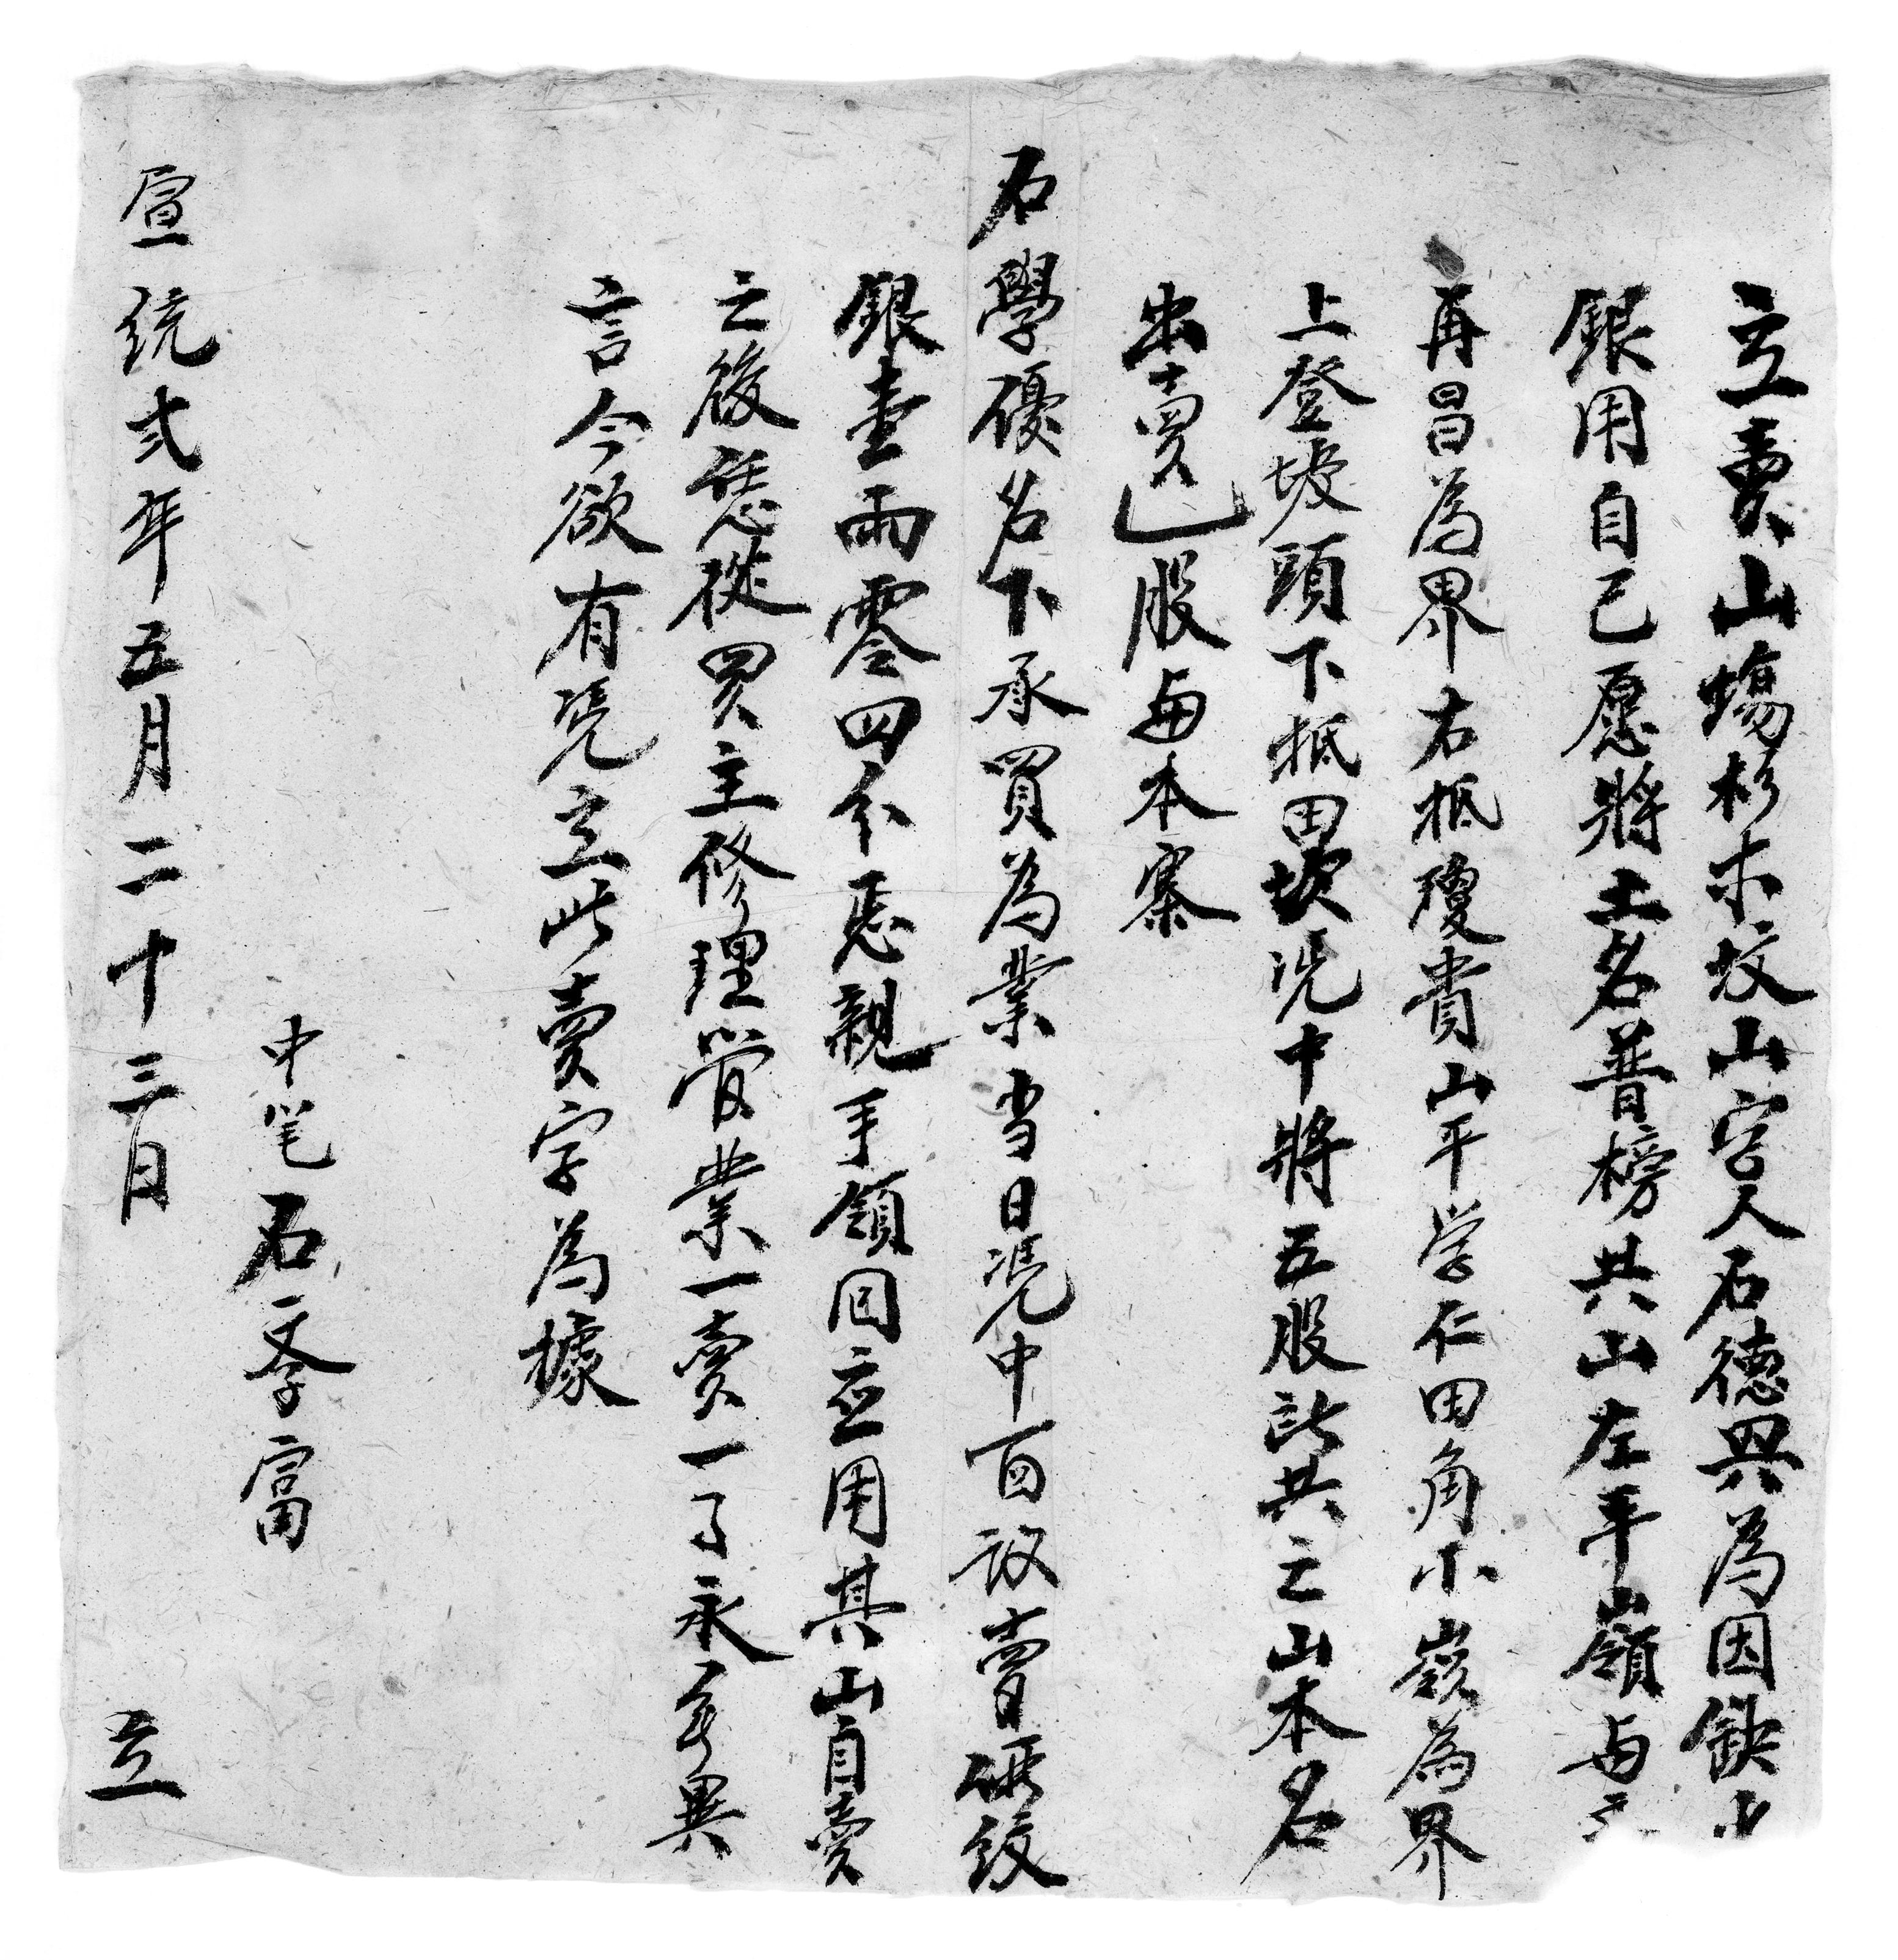 立賣山塲杉木坟山字人石德興為因缺少
銀用自己愿將土名普榜共山左平嶺与
再昌為界右抵瓊貴山平学仁田角小嶺為界
上登坡頭下抵田坎凭中將五股訴共之山本名
出賣一股与本寨
石學優名下承買為業当日凭中百議賣價紋
銀壹両零四分悉親手領回应用其山自賣
之後恁從買主修理管業一賣一了永無異
言今欲有凭立此賣字為據
中笔石斈富
宣統弍年五月二十三日 立